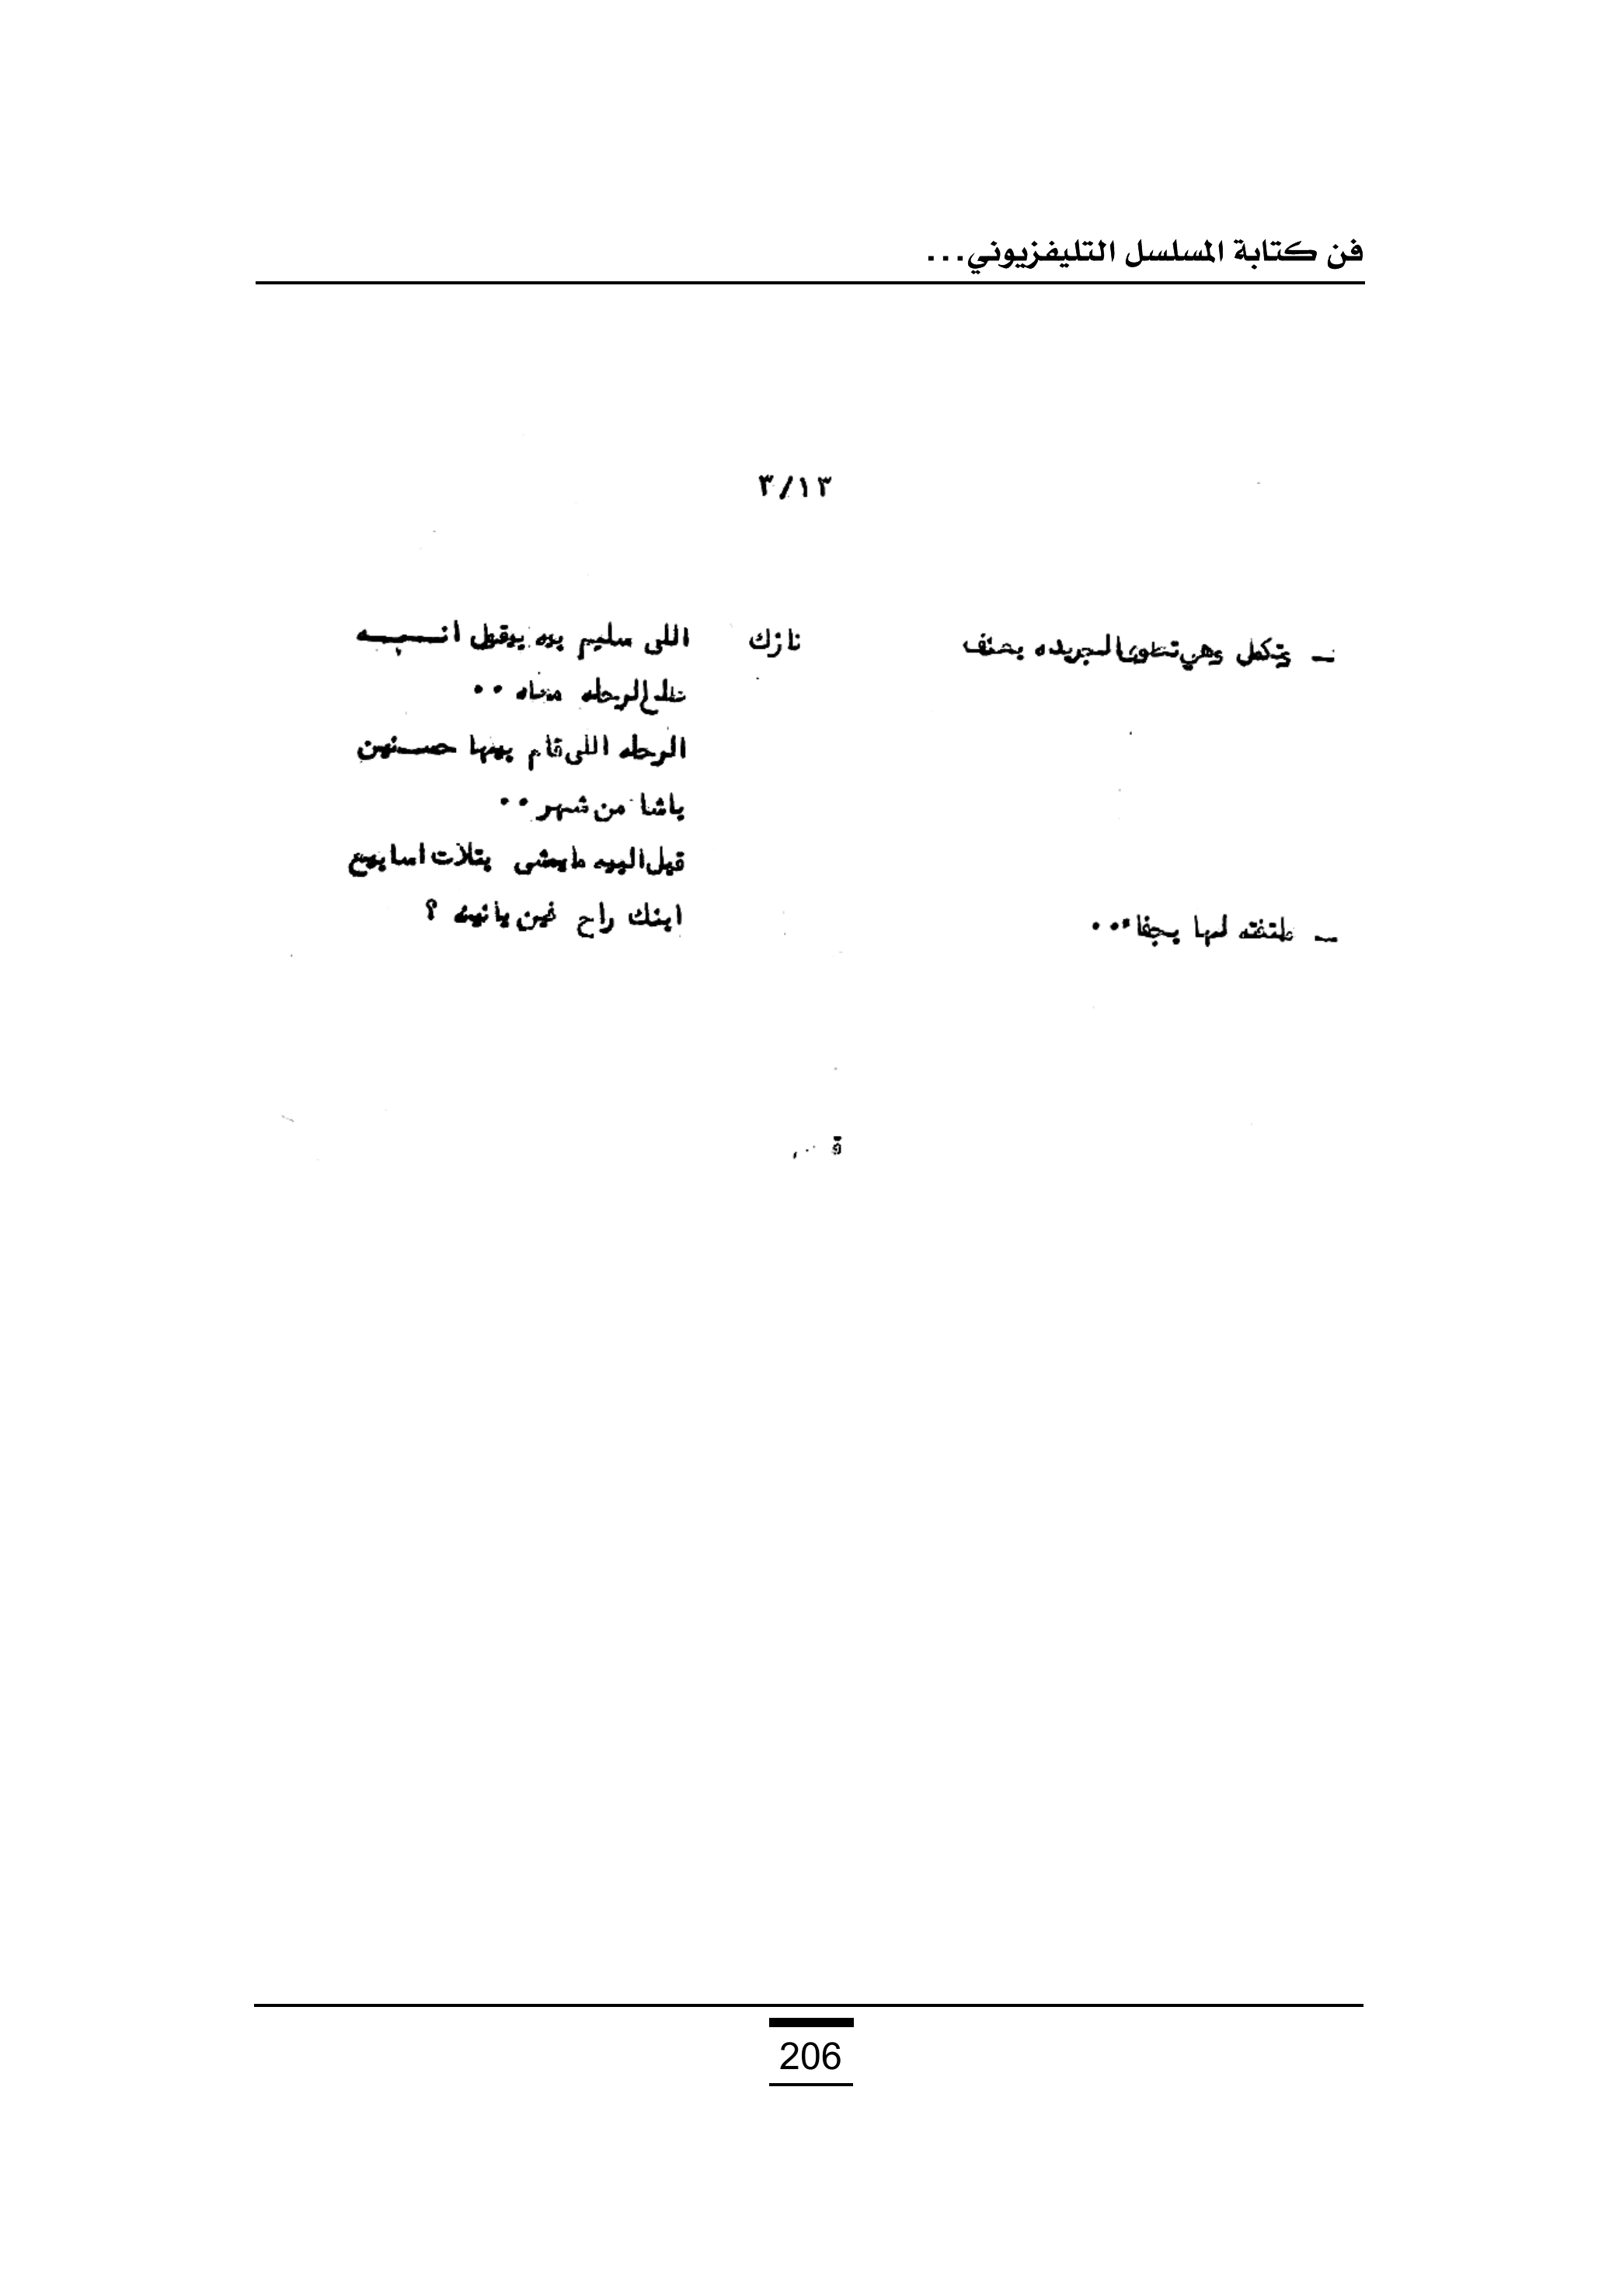 فن كتابة المسلسل التليفزيوني...
٣/١٣
ـ تكمل وهي تطوى الجريده بعنف
نازك
اللى سليم بيه بيقول انـــــه
طلع الرحله معاه ٠٠
الرحله اللى قام بيها حســنين
باشا من شهر ٠٠
قبل البيه مايمشى بتلات اسابيع
ـ ملتفته لها بجفاء ٠٠
ابنك راح فين يانينه ؟
206